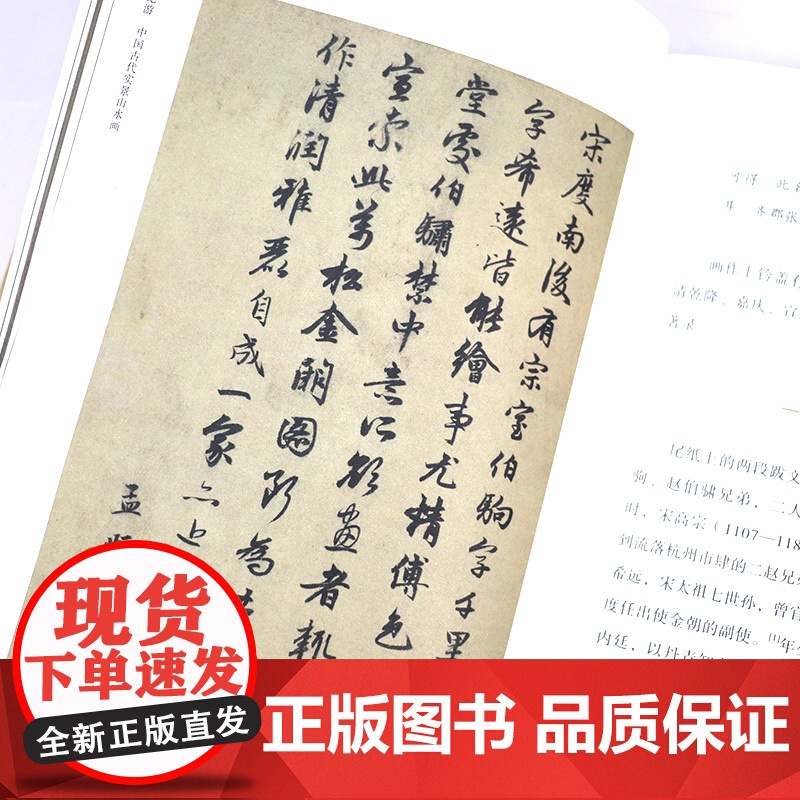 中国古代实景山水画
宋度南後有宗室伯駒字千里
字希遠皆能繪事尤精傅色
堂雯伯驌禁中意所欲畫者輒
宣索此萬松金闕圖斷為
作清潤雅麗自成一家亦近
孟
可得 此
耳 齐郡张
画作上钤盖
清乾隆、嘉庆、宣
著录
尾纸上的两段跋文
驹、赵伯骕兄弟，二人
时，宋高宗（1107—118
到流落杭州市肆的二赵兄弟
希远，宋太祖七世孙，曾官
度任出使金朝的副使。[1]年少
内廷，以丹青知
现货
全新正版直发
正版图书 品质保证